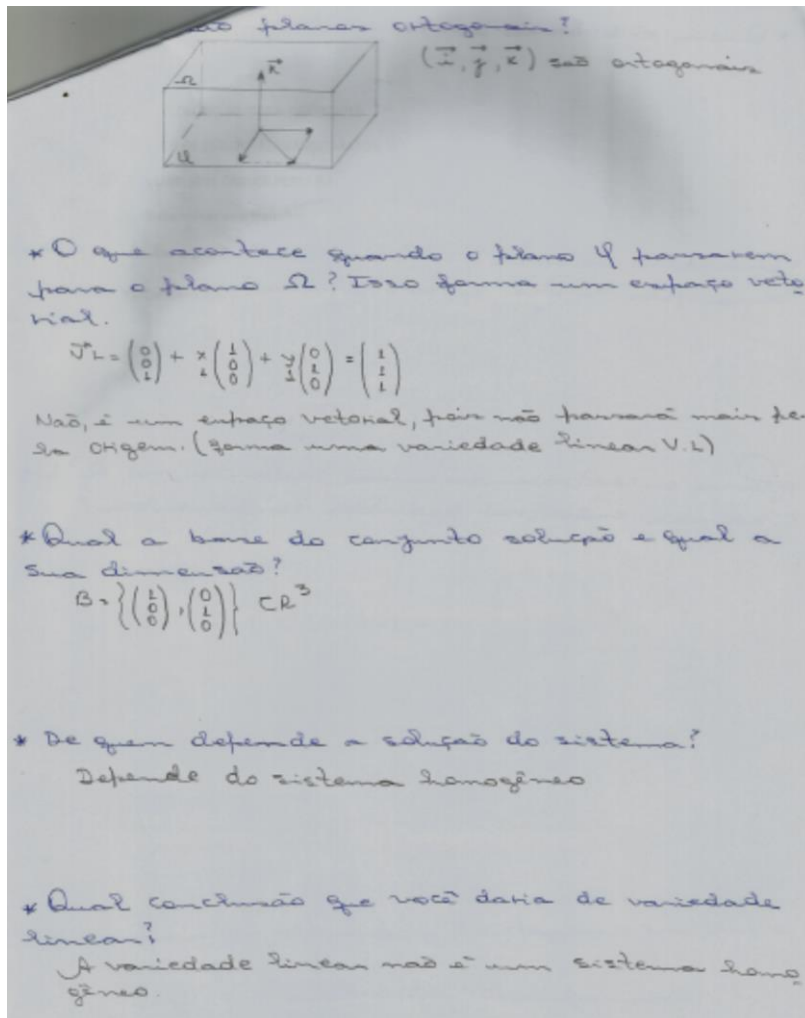 são planos ortogonais?
(i, j, k) são ortogonais
k
Ω
φ
* O que acontece quando o plano φ passarem
para o plano Ω? Isso forma um espaço veto
rial.
V.L = (0 0 1) + x 1 (1 0 0) + y 1 (0 1 0) = (1 1 1)
Não, é um espaço vetorial, pois não passará mais pe-
la origem. (forma uma variedade linear V.L)
* Qual a base do conjunto solução e qual a
sua dimensão?
B = {(1 0 0), (0 1 0)} ⊂ R³
* De quem depende a solução do sistema?
Depende do sistema homogêneo
* Qual conclusão que você daria de variedade
linear?
A variedade linear não é um sistema homo
gêneo.